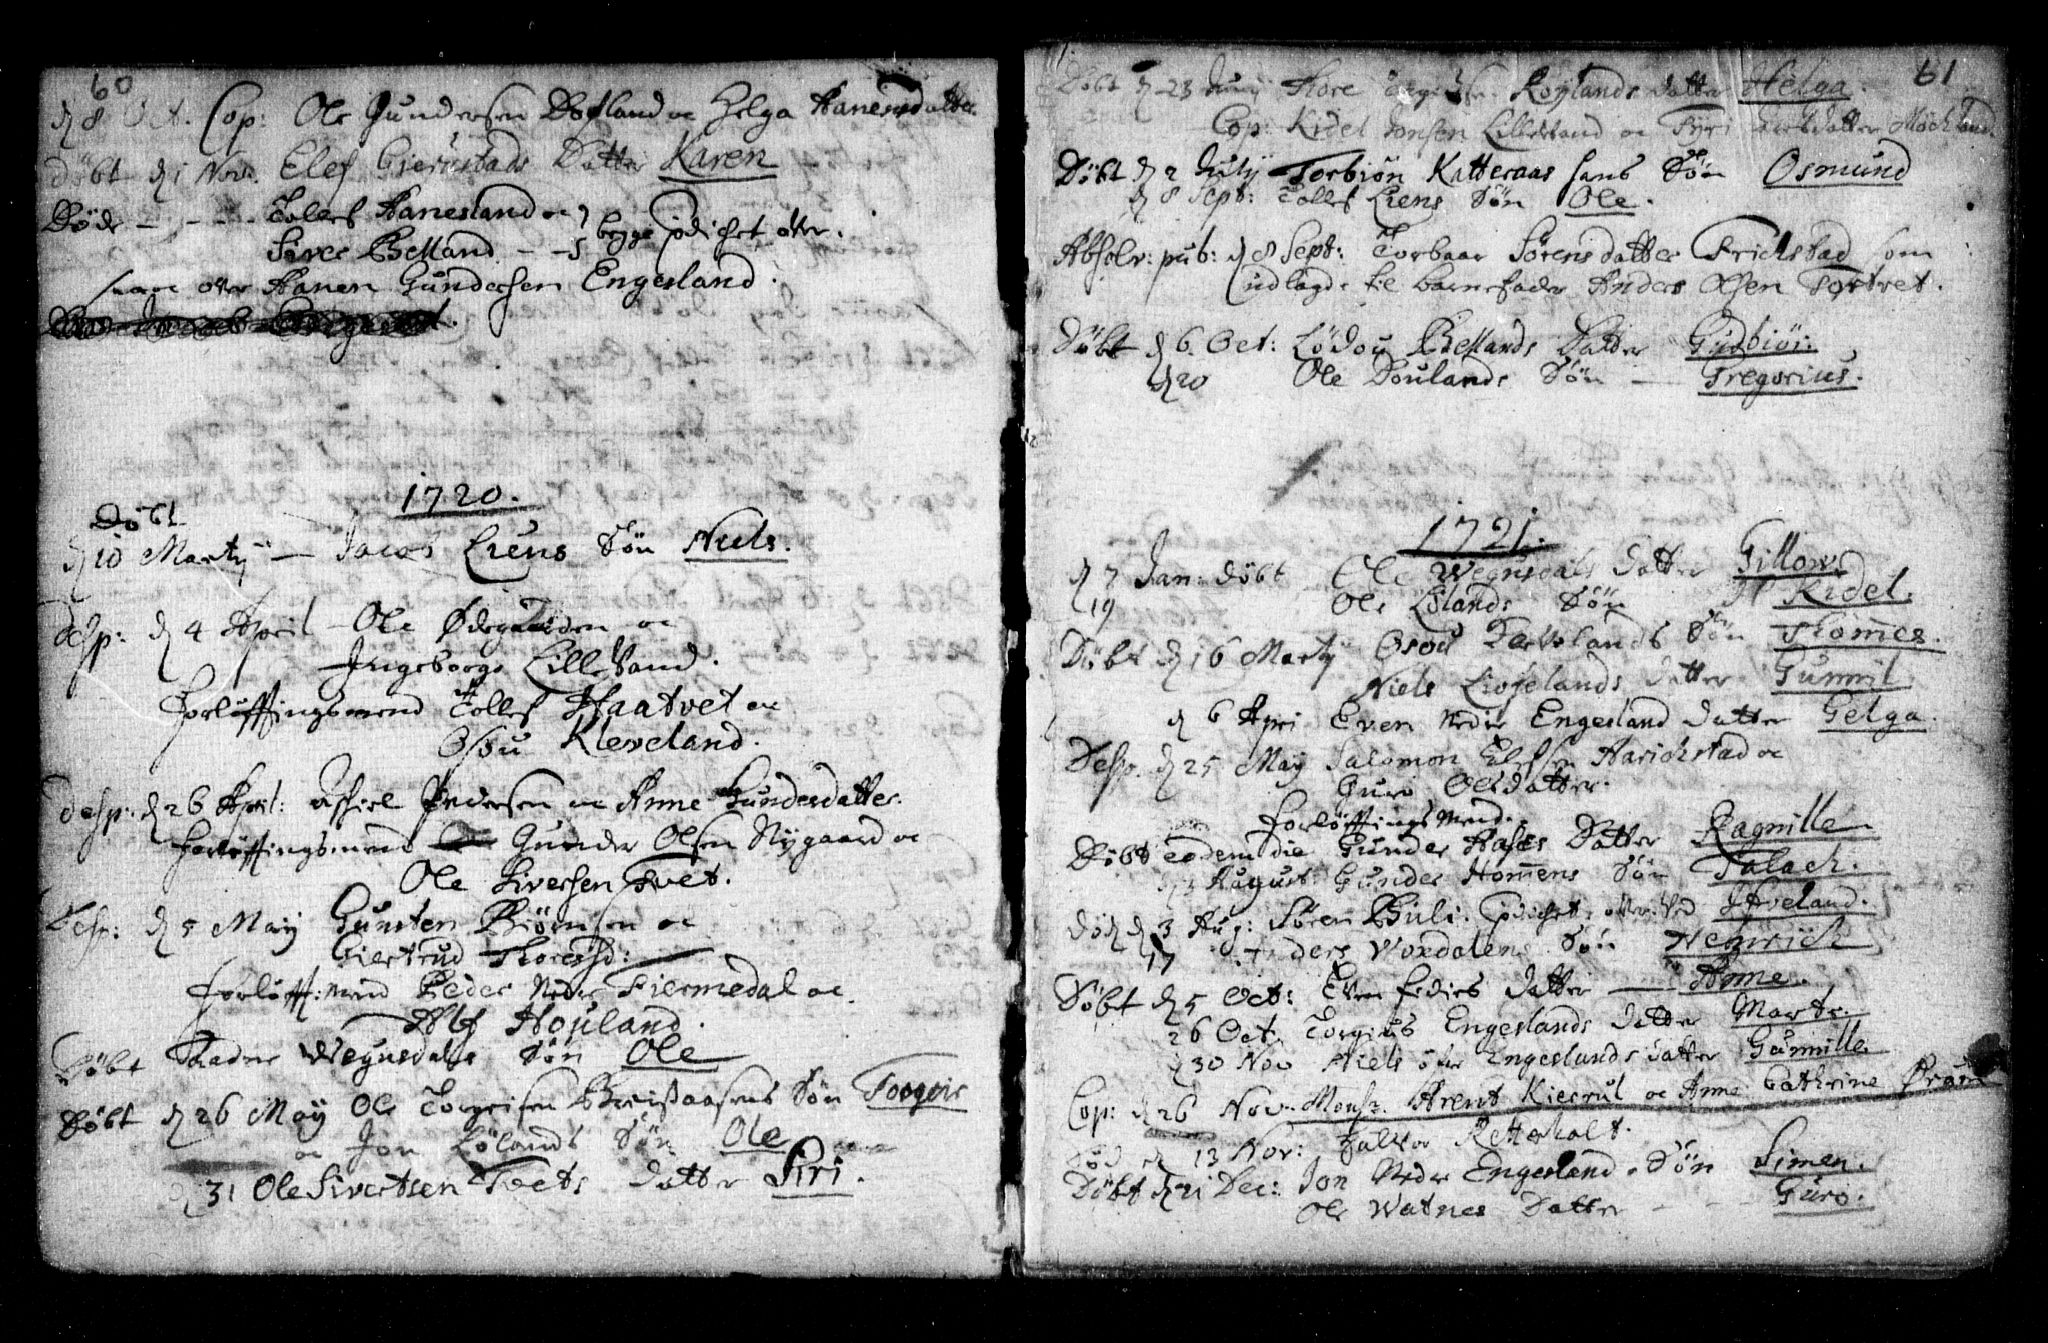 60
d 8 Oct. Cop: Ole Gundersen Dofland oc Helga Hanensdatter.
Døbt d 1 Nov. Elef Gierustads Datter Karen
Døde - - - Tollef Hanesland oc
Siver Belland - - begge prædichet over.
samme over Hanen Gundersen Engesland.
1720.
Døbt
d 10 Marty — Jacob Liens Søn Niels.
Desp: d 4 April - Ole Ødegaarden oc
Ingeborge Lillesand.
Forløffningsmend Tollef Haatvet oc
Osou Kleveland.
Desp: d 26 April: Aschiel Pedersen oc Anne Gundersdatter.
Forløffningsmend Gunder Olsen Nygaard oc
Ole Siversen Tvet.
Desp: d 5 May Gunsten Biørnsen oc
Giertrud Thoresd:
Forløff:mend Peder Neder Tiermedal oc
Alf Høyland.
Døbt Aadne Wegusdals Søn Ole
Døbt d 26 May Ole Torgrisen Breisaasens Søn Torgris
oc Jon Lølands Søn Ole
d 31 Ole Sivertsen Tvets Datter Siri.
61
Døbt d 23 Juny Thore Røylands datter Helga.
Cop: Kidel Jonsen Lillesand oc Syri datter
Døbt d 2 July Torbiøn Katteraas hans Søn Osmund
d 8 Sept: Tollef Liens Søn Ole.
Absolv: pub: d 8 Sept: Torbaar Sørensdatter Frichstad som
udlagde til barnefader Anders Olsen Tortvet.
Døbt d 6. Oct: Lødou Bellands Datter Gudbiør.
d 20 Ole Doulands Søn — Gregorius.
1721.
d 7 Jan: døbt Ole Wegusdals Datter Gillow
19 Ole Lølands Søn Kidel.
Døbt d 16 Marty Osou Søn Thomes.
Niels Liøselands datter Gunnil
d 6 Apri Even Neder Engesland datter Gelga.
Desp. d 25 May Salomon Elefsen Harichstad oc
Guro Olsdatter.
Forløffningsmend.
Døbt eodem die Gunder Aases Datter Ragnille
August Gunder Hommens Søn Salach.
død d 3 Aug: Søren Buli. prædichet over ved Hveland.
17 Anders Woxdalens Søn Henrich
Døbt d 5 Oct: Even Datter — Anne.
26 Oct. Torgius Engeslands datter Marte.
d 30 Nov Niels øfre Engeslands datter Gunnille
Cop: d 26 Nov. Monsr. Arent Kierrul oc Anne Cathrine Ørum
død d 13 Nov: Halvor Retterholt.
Døbt d 21 Dec: Jon Neder Engesland. Søn Simen.
Ole Watnes Datter - - Guro.